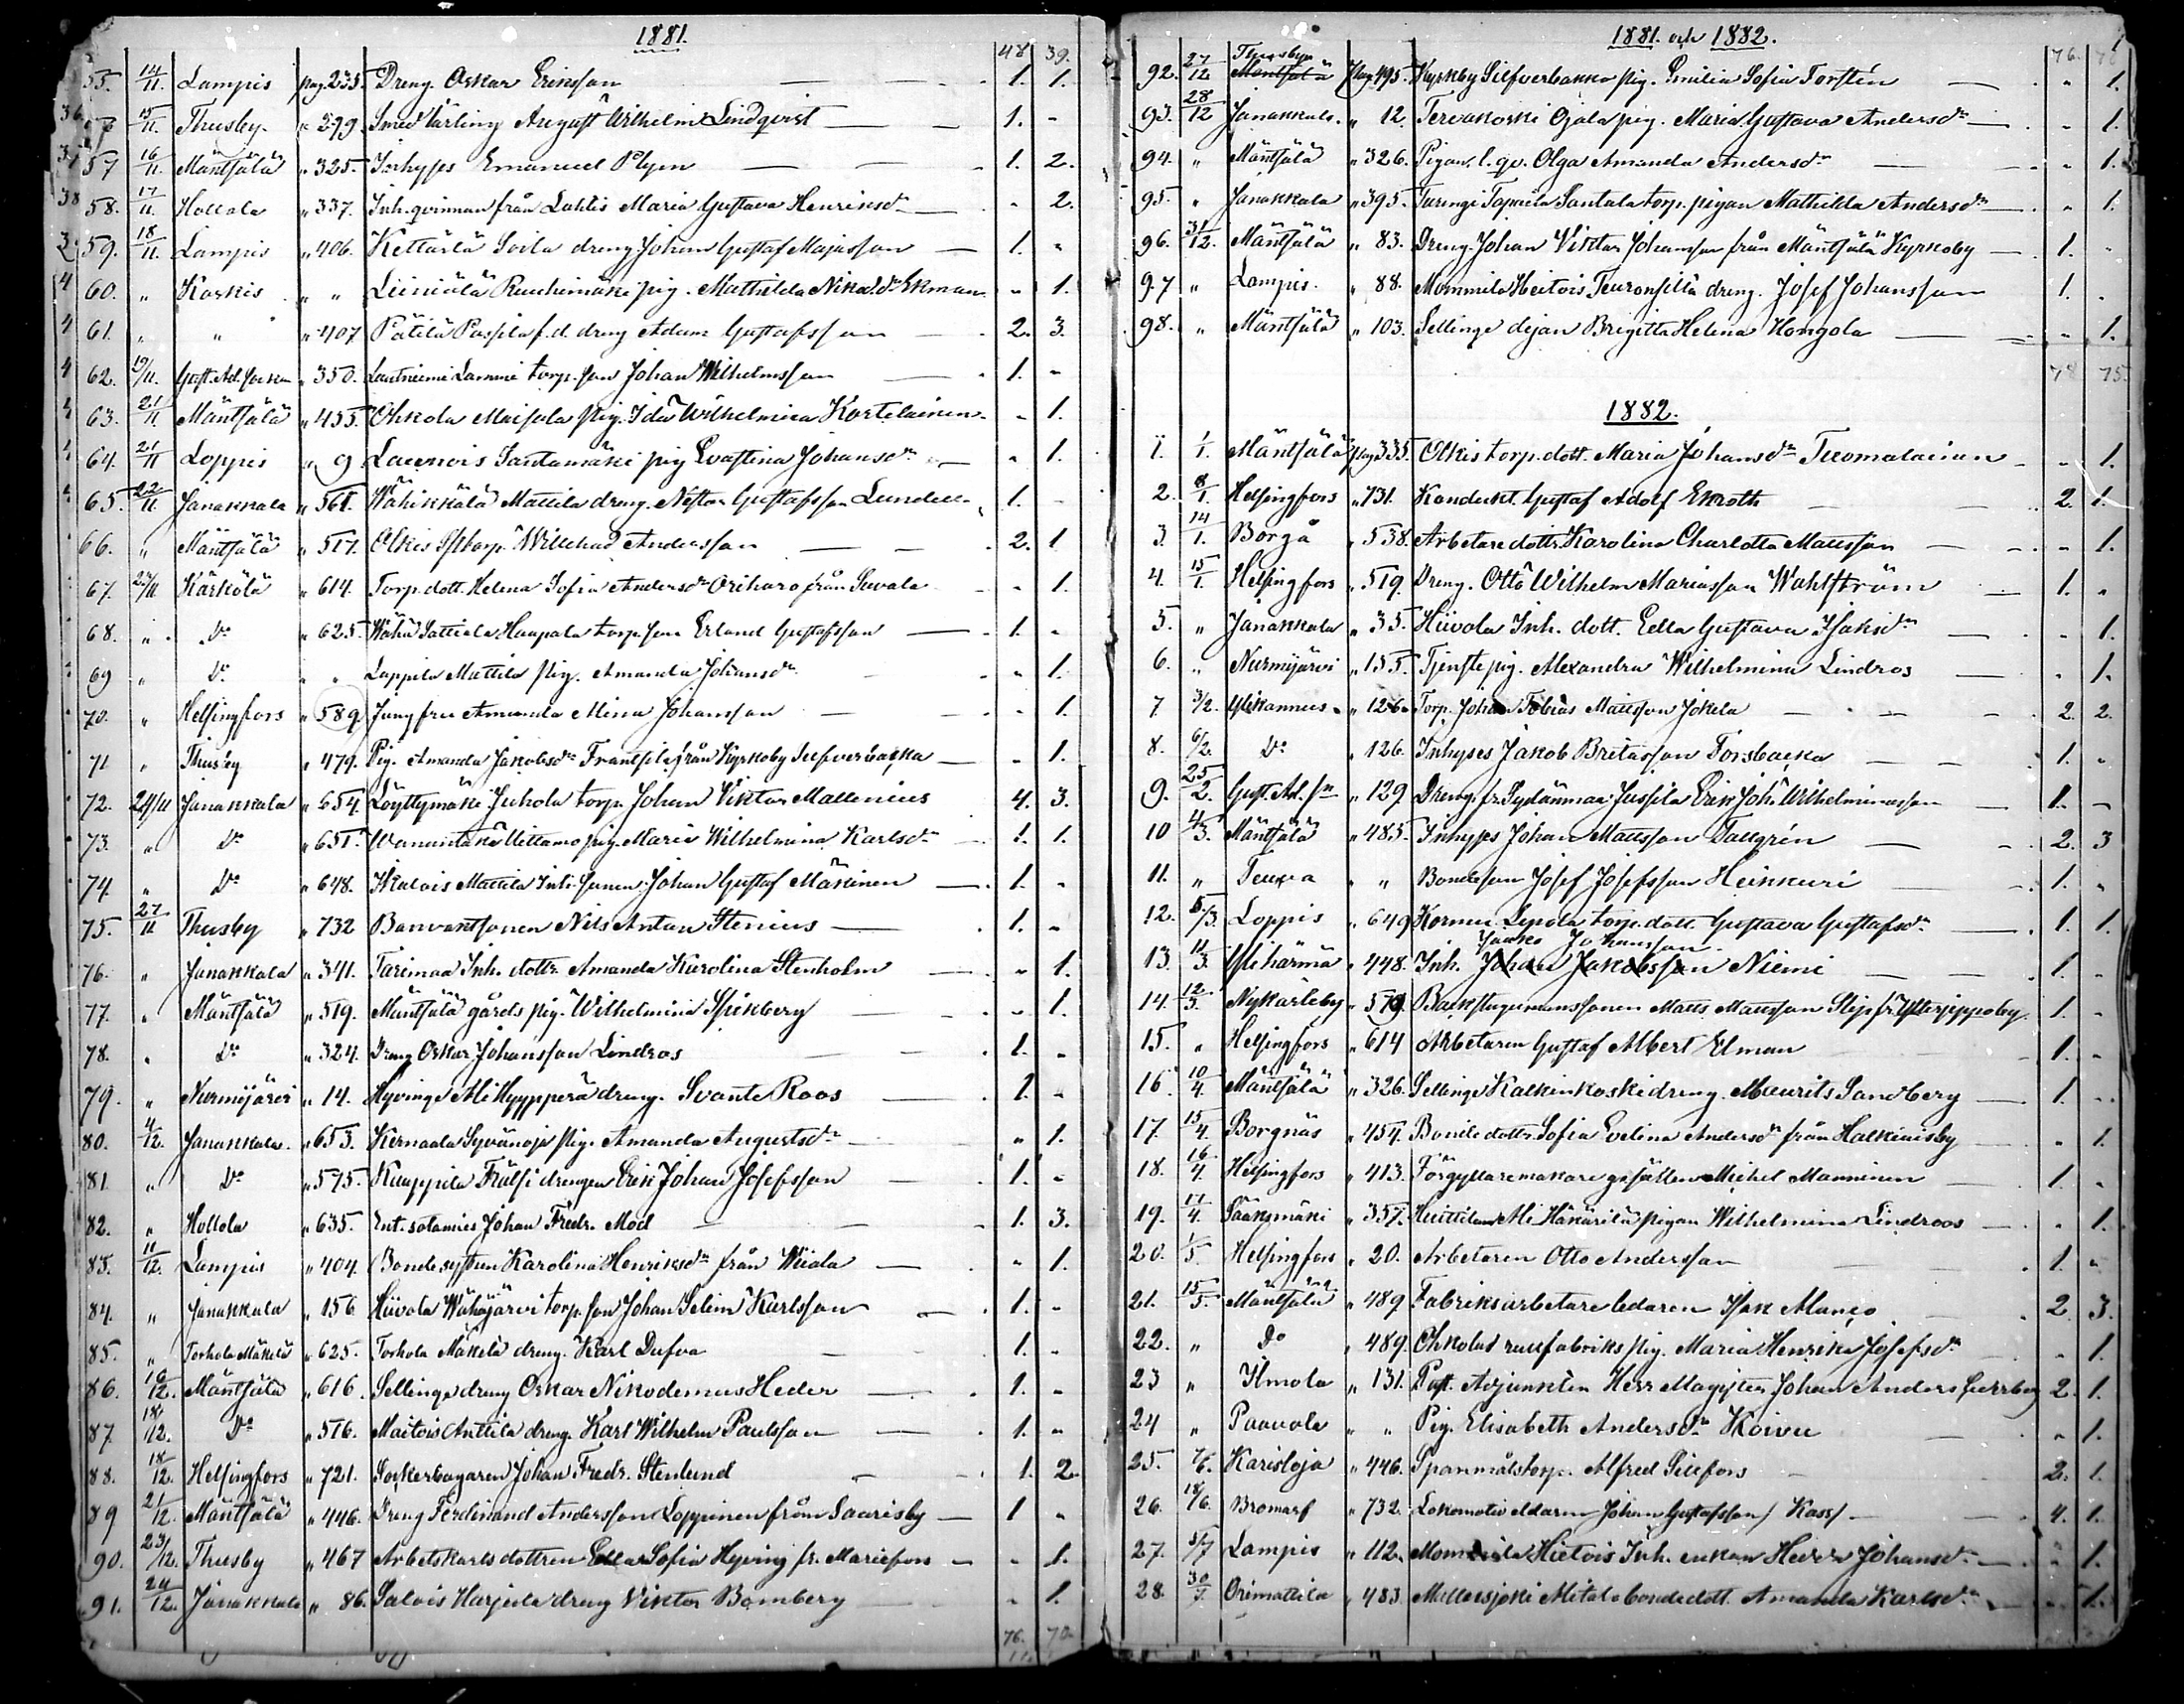 1881.
48 39.
55. 14/11. Lampis pag. 235. Dreng. Oskar Eriksson — 1. 1.
56 15/11. Thusby. " 299. Smed lärling August Wilhelm Lindqvist — 1. -
57 16/11. Mäntsälä " 325. Inhyses Emanuel — 1. 2.
58. 17/11. Hollola " 337. Inh. qvinnan från Lahtis Maria Gustava Henriksdr — - 2.
59. 18/11. Lampis " 406. Kettärlä Soila dreng Johan Gustaf Majasson — 1. "
60. " Koskis " " Ruuhimäki pig. Mathilda Ekman - 1.
61. " " " 407 Pätilä f.d. dreng Adam Gustafsson — 2. 3.
62. 19/11. Gust. Ad. " 350. Lautniemi Lammi torp. son Johan Wilhelmsson — 1. -
63. 21/11. Mäntsälä " 455. Ohkola Maisala pig. Ida Wilhelmina Kortelainen - 1.
64. 21/11 Loppis " 9 Santamäki pig Evastina Johansdr — - 1.
65. 22/11 Janakkala " 561. Wähikkälä Mattila dreng. Nestor Gustafsson 1. -
66. " Mäntsälä " 517. Olkis Andersson — 2. 1
67. 23/11 Kärkölä " 614. Torp. dott. Helena Sofia Andersdr från - 1.
68. " Do " 625. Wähä Sattiala Haapala torp. son Erland Gustafsson — 1. -
69 " Do " " Lappila Mattila pig. Amanda Johansdr - 1.
70. " Helsingfors " 589 Jungfru Amanda Mina Johansson — - 1.
71 " Thusby " 479. Pig. Amanda Jakobsdr Frantsila från Kyrkoby — - 1.
72. 24/11 Janakkala " 654. Löyttymäki Juhola torp. Johan Viktor Mallenius 4. 3.
73. " Do " 651. Wanantaka Uittamo pig. Maria Wilhelmina Karlsdr 1. 1.
74. " Do " 648. Ikalois Mattila Inh. sonen Johan Gustaf Mäkinen — 1. -
75. 27/11 Thusby " 732 Banvaktsonen Nils Anton Stenius — 1. -
76. " Janakkala " 341. Tarinmaa Inh. dottr. Amanda Karolina Stenholm — - 1.
77. " Mäntsälä " 519. Mäntsälä gårds pig. Wilhelmina Spikberg — - 1.
78. " Do " 324. Dreng Oskar Johansson Lindros 1. -
79. " Nurmijärvi " 14. Hyvinge dreng. Svante Roos — 1. -
80. 4/12. Janakkala. " 653. Kernaala Syvänoja pig. Amanda Augustsdr — " 1.
81. " Do " 575. Kauppila Frälsi drengen Erik Johan Josefsson — 1. -
82. " Hollola " 635. Ent. sotamies Johan Fredr. Mod — 1. 3.
83. 11/12. Lampis " 404. Bonde systern Karolina Henriksdr från — " 1.
84. " Janakkala " 156 Hiivola Wähäjärvi torp. son Johan Selim Karlsson — 1. -
85. " Torhola Mäkelä " 625. Torhola Mäkelä dreng. Karl Dufva 1. -
86. 16/12. Mäntsälä " 616. Sellinge dreng Oskar Nikodemus Heder — 1. -
87. 18/12. Do " 516. Maitois Anttila dreng. Karl Wilhelm Paulsson — 1. "
88. 18/12. Helsingfors " 721. Sockerbagaren Johan Fredr. Stenlund 1. 2.
89 21/12. Mäntsälä " 446. Dreng Ferdinand Andersson Loppinen från Saarisby — 1 "
90. 23/12. Thusby " 467 Arbetskarls dottren Ella Sofia Hyving fr. Mariefors — - 1.
91. 24/12. Janakkala " 86. Salois Harjula dreng Viktor Bomberg — - 1.
76. 70.
1881. och 1882.
76. 70
92. 27/12 Thusby Mäntsälä pag. 495. Kyrkby Silfverbacka pig. Emilia Sofia Torstén — " 1.
93. 28/12 Janakkala. " 12. Tervakoski Ojala pig. Maria Gustava Andersdr — " 1.
94. " Mäntsälä " 326. Pigan. l. qv. Olga Amanda Andersdr — " 1.
95. " Janakkala " 395. Turingi Tapiola Santala torp. pigan Mathilda Andersdr — " 1.
96. 31/12. Mäntsälä " 83. Dreng Johan Viktor Johansson från Mäntsälä Kyrkoby — 1. "
97 " Lampis. " 88. Mommila Heitois dreng. Josef Johansson 1. "
98. " Mäntsälä " 103. Sellinge dejan Brigitta Helena Hongola — " 1.
78 75.
1882.
1. 1/1. Mäntsälä pag 335. Olkis torp. dott. Maria Johansdr Tuomalainen - " 1.
2. 8/1. Helsingfors " 731. Kondukt. Gustaf Adolf Ekroth 2. 1.
3. 14/1. Borgå " 538. Arbetare dottr. Karolina Charlotta Mattsson — - 1.
4. 15/1. Helsingfors " 519. Dreng. Otto Wilhelm Mariasson Wahlström 1. "
5. " Janakkala " 35. Hiivola Inh. dott. Eella Gustava Isaksdr — - 1.
6. " Nurmijärvi " 155. Tjenste pig. Alexandra Wilhelmina Lindros — - 1.
7. 3/2. Ylikannus " 126. Torp. Johan Tobias Mattsson Jokela — 2. 2.
8. 6/2. Do " 126. Inhyses Jakob Britasson Torsbacka — 1. "
9. 25/2. Gust. Ad. sn " 129 Dreng. fr. Sydänmaa Jussila Erik Joh. Wilhelminasson 1. -
10 4/3. Mäntsälä " 485. Inhyses Johan Mattsson Tallgrén — 2. 3
11. " Teuva " " Bondeson Josef Josefsson Heinkuri — 1. "
12. 5/3. Loppis " 649 Kormu Lepola torp. dott. Gustava Gustafsdr — 1. 1.
Jaako Johansson
13. 11/3. Yliharmä " 448. Inh. Johan Jakobsson Niemi — 1. -
14. 12/3. Nykarleby " 579. Backstugumanssonen Matts Mattsson Slip fr. Ytterjeppoby. 1. -
15. " Helsingfors " 614 Arbetaren Gustaf Albert Elman 1. -
16 10/4. Mäntsälä " 326. Sellinge Kalkinkoski dreng. Maurits Sandberg — 1. -
17. 15/4. Borgnäs " 454. Bonde dottr. Sofia Evelina Andersdr från Halkiaisby — " 1.
18. 16/4. Helsingfors " 413. Förgyllaremakare gesällen Michel Manninen — 1. -
19. 17/4. Sääksmäki " 357. Huittula Ali Häkärilä pigan Wilhelmina Lindroos — " 1.
20. 1/5. Helsingfors " 20. Arbetaren Otto Andersson 1. "
21. 15/5. Mäntsälä " 489 Fabriksarbetare ledaren Isak 2. 3.
22. " Do " 489. Ohkola fabriks pig. Maria Henrika Josefsdr " 1.
23 " Ilmola " 131. Past. Adjunkten Herr Magister Johan Anders 2. 1.
24 " Paavola " " Pig. Elisabeth Andersdr Koivu " 1.
25. 7/6. Karisloja " 446. Spanmålstorp. Alfred 2. 1.
26. 18/6. Bromarf " 732. Lokomotiveldaren Johan Gustafsson / Kass/ — 4. 1.
27. 5/7 Lampis " 112. Mommila Hietois Inh. enkan Johansdr — " 1.
28. 30/7. Orimattila " 483. Mallusjoki bondedott. Amanda Karlsdr " 1.